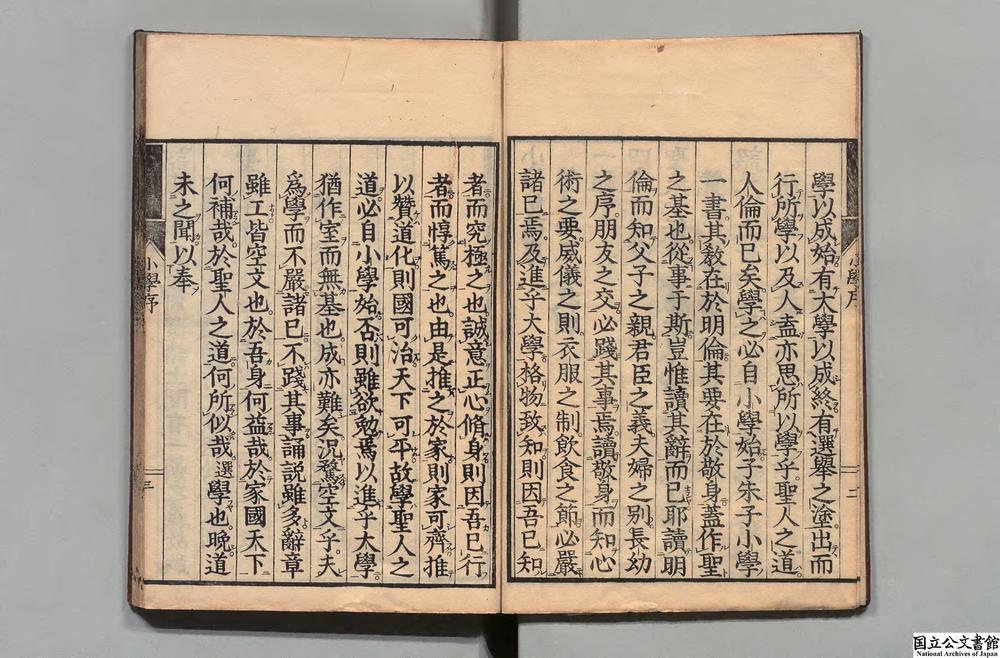 學以成始有大學以成終有選舉之塗出而
行所學以及人盍亦思所以學乎聖人之道
人倫而已矣學之必自小學始子朱子小學
一書其教在於明倫其要在於敬身蓋作聖
之基也從事于斯豈惟讀其辭而已耶讀明
倫而知父子之親君臣之義夫婦之別長幼
之序朋友之交必踐其事焉讀敬身而知心
術之要威儀之則衣服之制飲食之節必嚴
諸已焉及進乎大學格物致知則因吾已知
者而究極之也誠意正心脩身則因吾已行
者而惇篤之也由是推之於家則家可齊推
以贊道化則國可治天下可平故學聖人之
道必自小學始否則雖欲勉焉以進乎大學
猶作室而無基也成亦難矣況騖空文乎夫
爲學而不嚴諸已不踐其事誦説雖多辭章
雖工皆空文也於吾身何益哉於家國天下
何補哉於聖人之道何所似哉選學也晚道
未之聞以奉
小學序
三
小學序
二
国立公文書館
National Archives of Japan